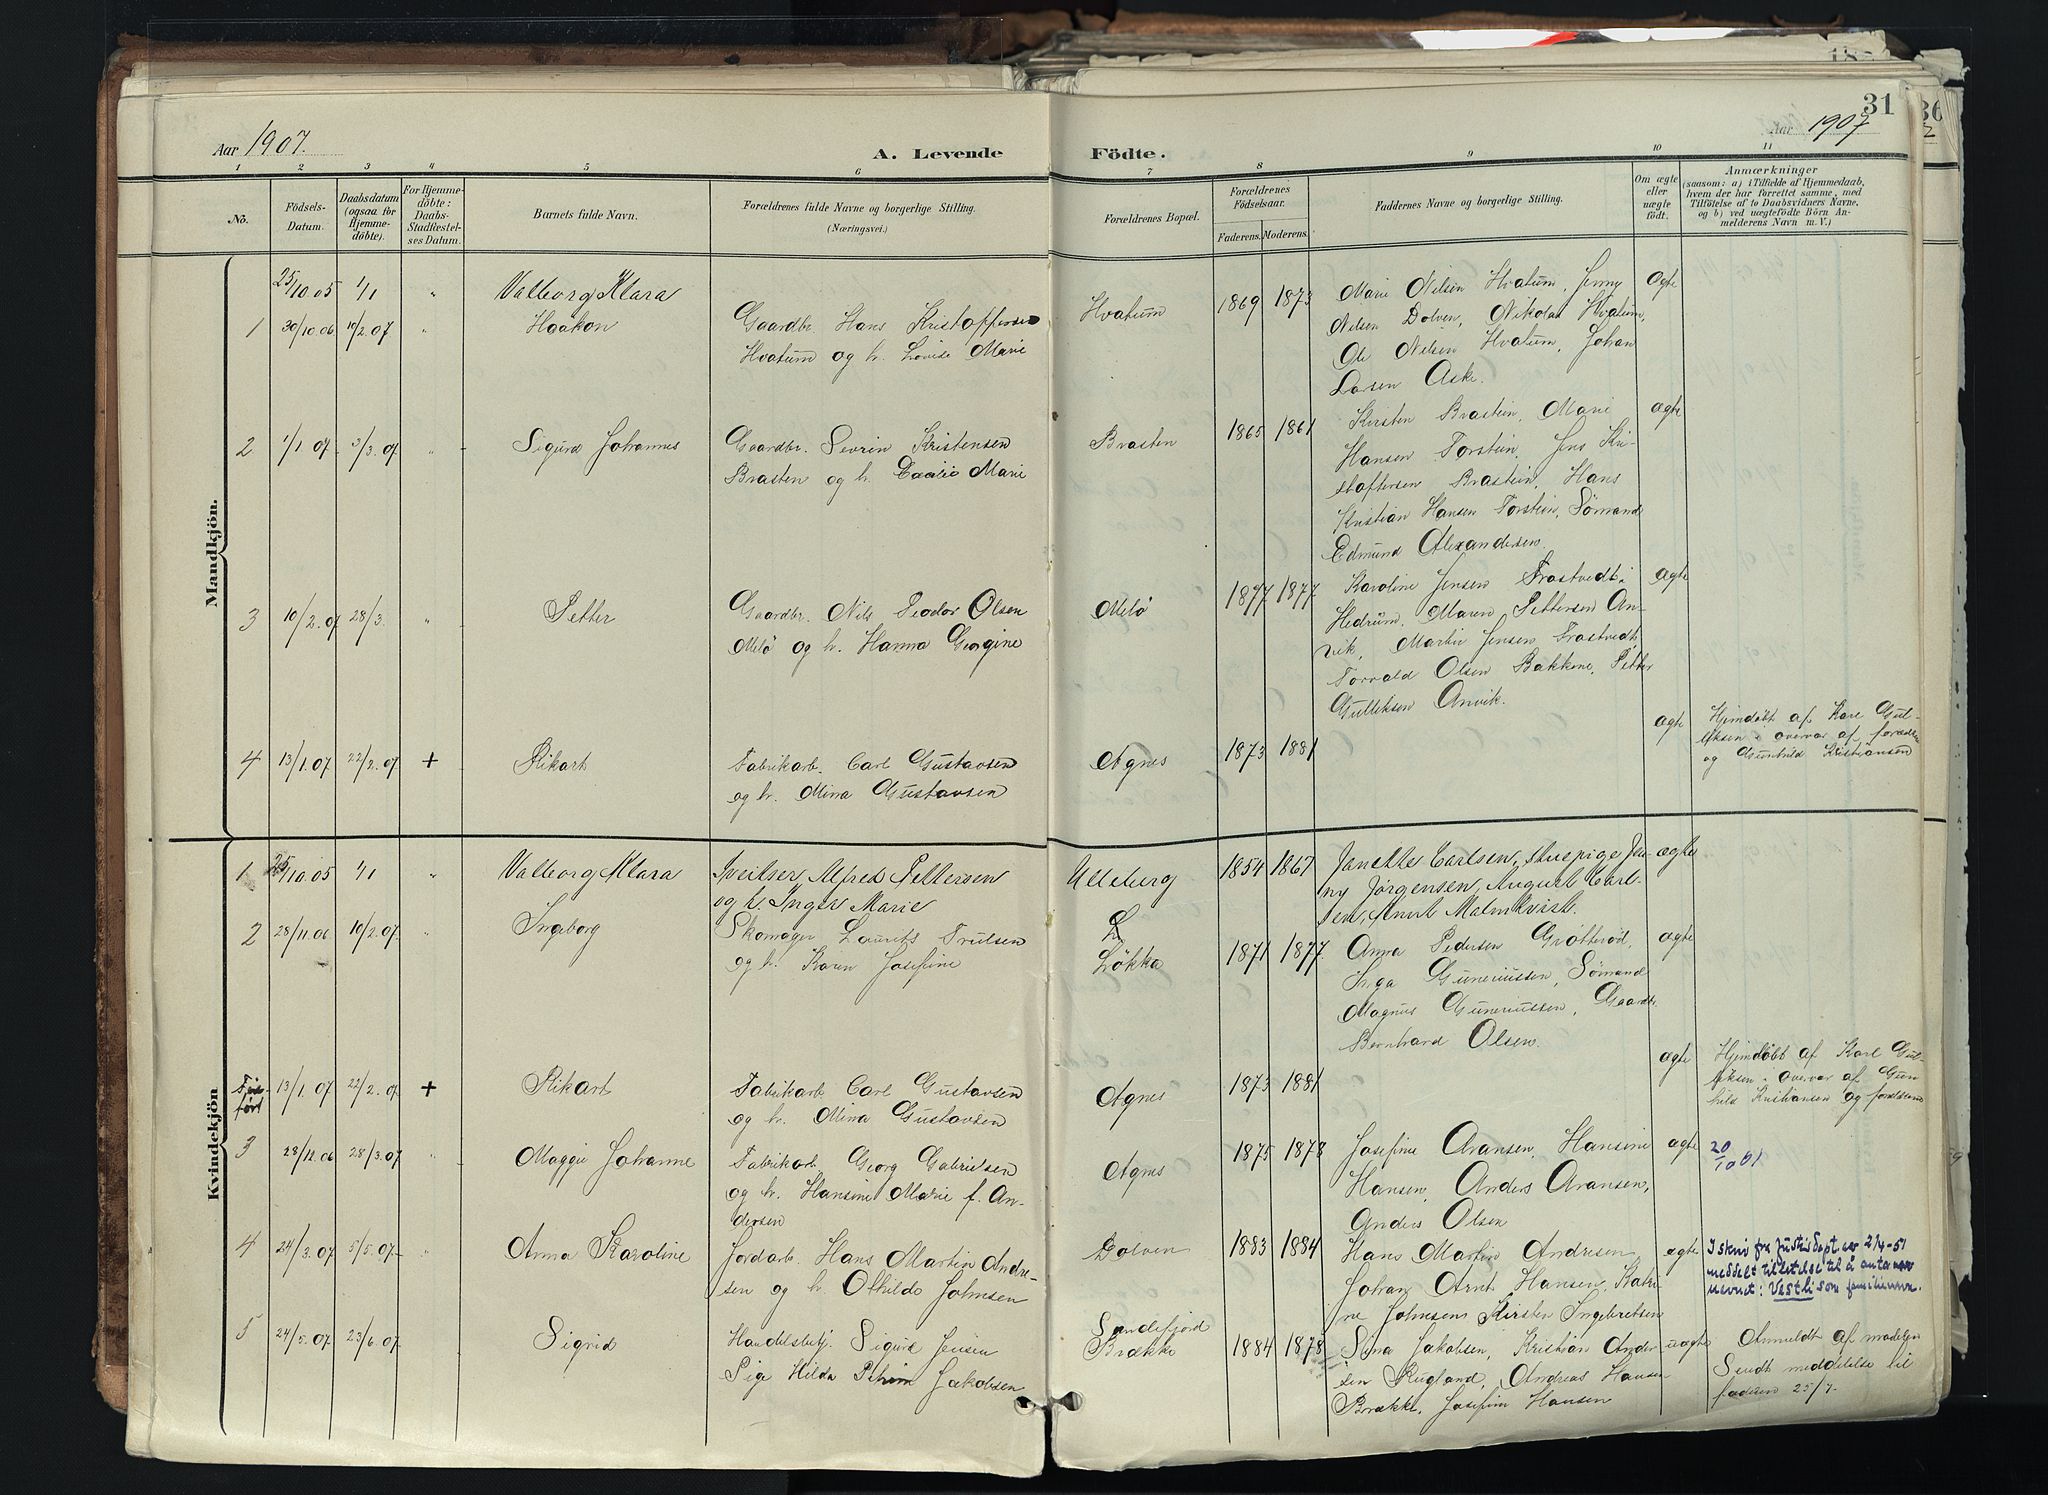 Aar 1907.
A. Levende
Födte.
31
Aar 1907
1 2 3 4 5 6 7 8 9 10 11
No.
Födsels-Datum.
Daabsdatum (ogsaa for Hjemme-döbte).
For Hjemme-döbte: Daabs-Stadfæstel-ses Datum.
Barnets fulde Navn.
Forældrenes fulde Navne og borgerlige Stilling. (Næringsvei.)
Forældrenes Bopæl.
Forældrenes Födselsaar.
Faderens. Moderens.
Faddernes Navne og borgerlige Stilling.
Om ægte eller uægte födt.
Anmærkninger
(saasom: a) i Tilfælde af Hjemmedaab, hvem der har forrettet samme, med Tilföielse af to Daabsvidners Navne, og b) ved uægtefödte Börn An-melderens Navn m. V.)
Mandkjön.
25/10.05 1/1 " Valborg Klara
1 30/10.06 10/2.07 " Haakon
Gaardbr. Hans Kristoffersen
Hvatum og h. Lovise Marie
Hvatum 1869 1873
Marie Nilsen Hvatum, Jenny
Nilsen Dolven, Nikolai Hvatum,
Ole Nilsen Hvatum, Johan
Larsen Aske.
Ægte
2 1/1.07. 3/3.07 " Sigurd Johannes
Gaardbr. Sevrin Kristensen
Brasten og h. Marie
Brasten 1865 1861
Kirsten Brastein, Marie
Hansen Torstein, Jens Kri-
stoffersen Brastein, Hans
Kristian Hansen Torstein, Sömand
Edmund Alexandersen.
ægte
3 10/2.07 28/3. " Petter
Gaardbr. Nils Teodor Olsen
Melö og h. Hanna Georgine
Melö 1877 1877
Karoline Jensen Trostvedt,
Hedrum, Maren Pettersen An-
vik, Martin Jensen Trostvedt
Torvald Olsen Bakkene, Petter
Gulliksen Anvik.
ægte
4 13/1.07 22/2.07 + Rikart
Fabrikarb. Carl Gustavsen
og h. Mina Gustavsen
Agnes 1873 1881
ægte
Hjemdöbt af Karl Gul-
liksen i overvær af forældrene
og Gunhild Kristiansen
Kvindekjön
1 25/10.05 1/1 " Valborg Klara
Sveitser Alfred Pettersen
og h. Inger Marie
Ulleberg 1854 1867
Janette Carlsen, stuepige Jen-
ny Jørgensen, August Carl-
sen, Knut Malmkvist.
ægte
2 28/11.06 10/2.07. " Ingeborg
Skomager Laurits Trulsen
og h. Karen Josefine
L
Løkka 1871 1877
Anna Pedersen Grøtterød,
Inga Guneriussen, Sömand
Magnus Guneriussen, Gaardbr.
Bernhard Olsen.
ægte
ført 13/1.07 22/2.07 + Rikart
Fabrikarb Carl Gustavsen
og h. Mina Gustavsen
Agnes 1873 1881
ægte
Hjemdöbt af Karl Gul-
liksen i overvær af Gun-
hild Kristiansen og forældrene
3 23/12.06 28/3.07 " Maggie Johanne
Fabrikarb. Georg Gabrielsen
og h. Hansine Marie f. An-
dersen
Agnes 1875 1878
Josefine Aransen, Hansine
Hansen, Anders Aransen,
Anders Olsen
ægte
20/10 61
4 24/3.07 5/5.07 " Anna Karoline
Jordarb. Hans Martin Andre-
sen og h Othilde Johnsen
Dolven 1883 1884
Hans Martin Andresen
Johan Arnt Hansen, Katri-
ne Johnsen, Kirsten Ingebretsen
ægte
I skriv fra Justisdept. av 21/4-51
meddelt tillatelse til å anta
navnet: Vestli som familienavn.
5 24/5.07 23/6.07 Sigrid
Handelsbetj. Sigurd Jensen
Pige Hilda Jakobsen
Sandefjord
Brække 1884 1878
Sina Jakobsen, Kristian Ander-
sen Rugland, Andreas Hansen
Brække, Josefine Hansen
uægte
Anmeldt af moderen
Sendt meddelelse til
faderen 25/7.